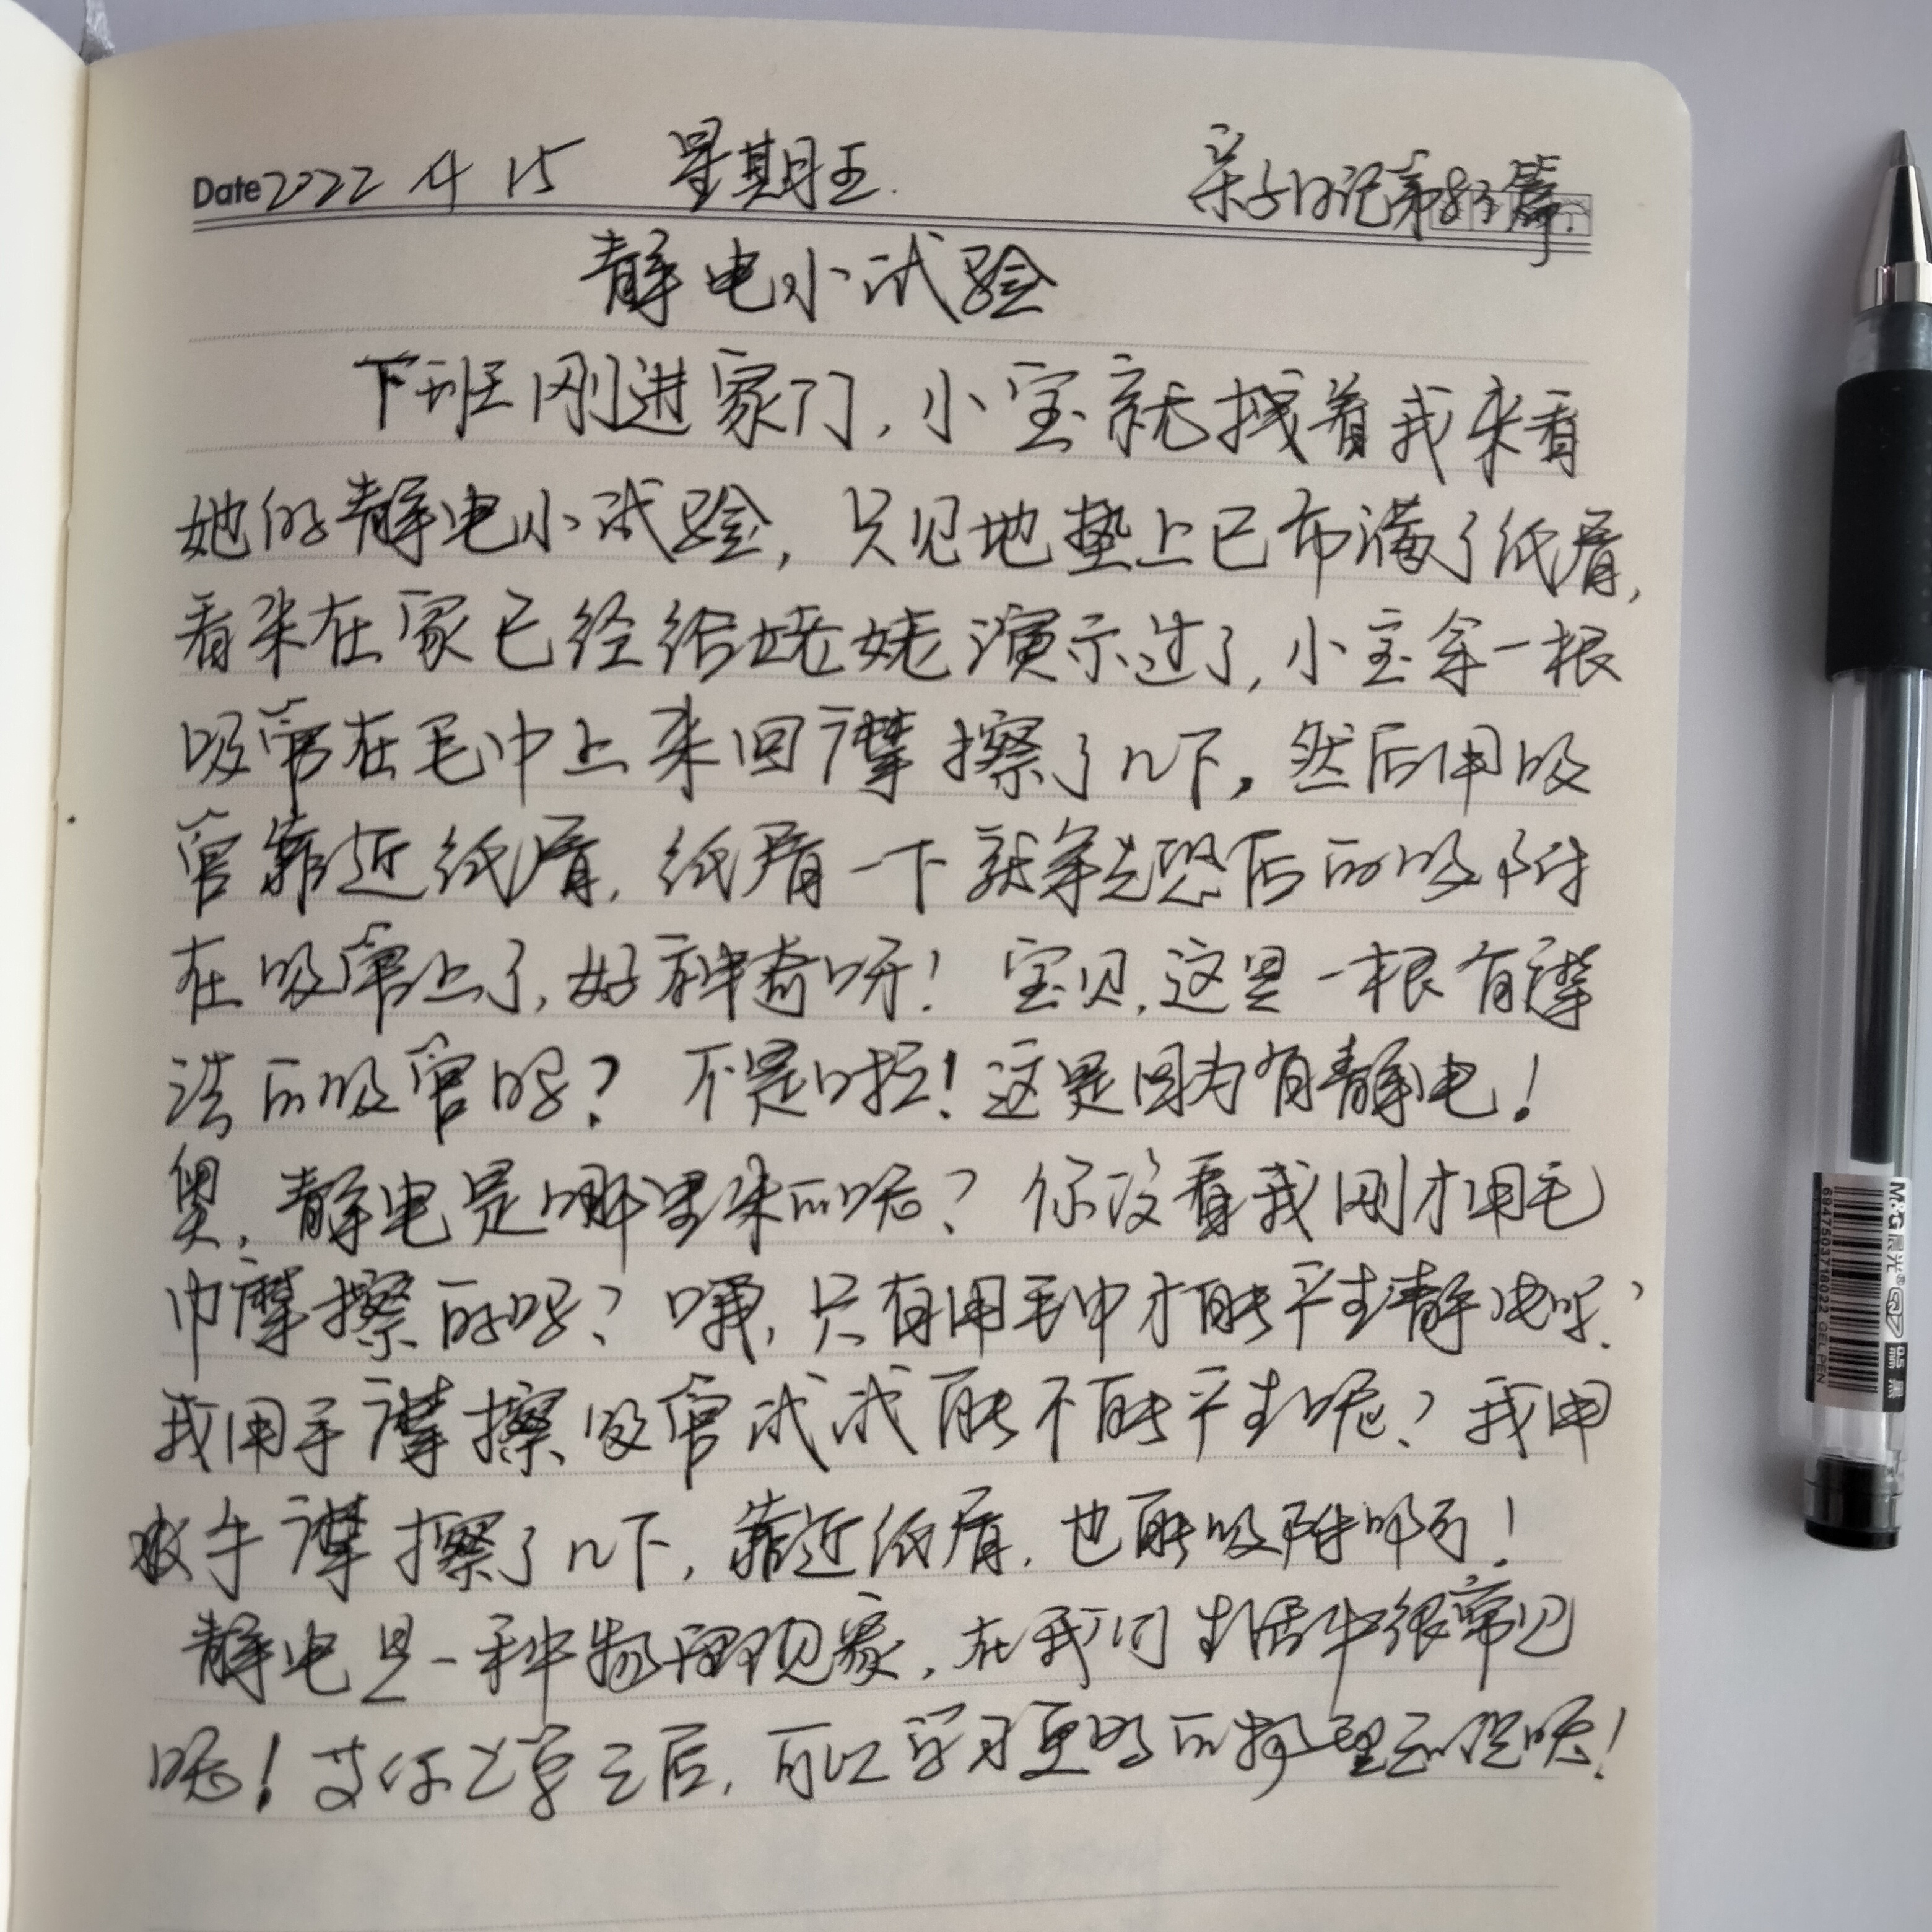 Date 2022 4 15 星期五. 亲子日记第83篇.
静电小试验
下班刚进家门,小宝就找着我来看
她的静电小试验,只见地垫上已布满了纸屑,
看来在家已经给姥姥演示过了,小宝拿一根
吸管在毛巾上来回摩擦了几下,然后用吸
管靠近纸屑,纸屑一下就争先恐后的吸附
在吸管上了,好神奇呀!宝贝,这是一根有摩
法的吸管吗?不是啦!这是因为有静电!
奥,静电是哪里来的呢?你没看我刚才用毛
巾摩擦的吗?哦,只有用毛巾才能产生静电吗?
我用手摩擦吸管试试能不能产生呢?我用
双手摩擦了几下,靠近纸屑,也能吸附啊!
静电是一种物理现象,在我们生活中很常见
呢!等你上学之后,可以学习更多的物理知识呢!
M&G 晨光® 0.5 mm 黑
6947503718022 GEL PEN